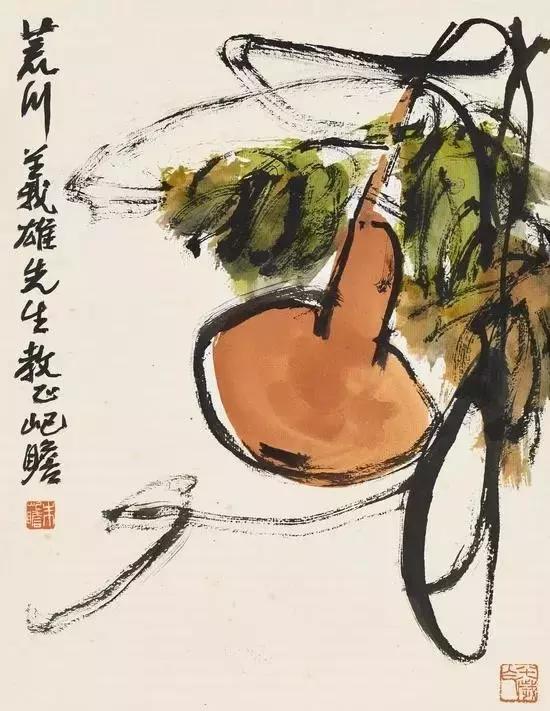 荒川義雄先生教正屺瞻